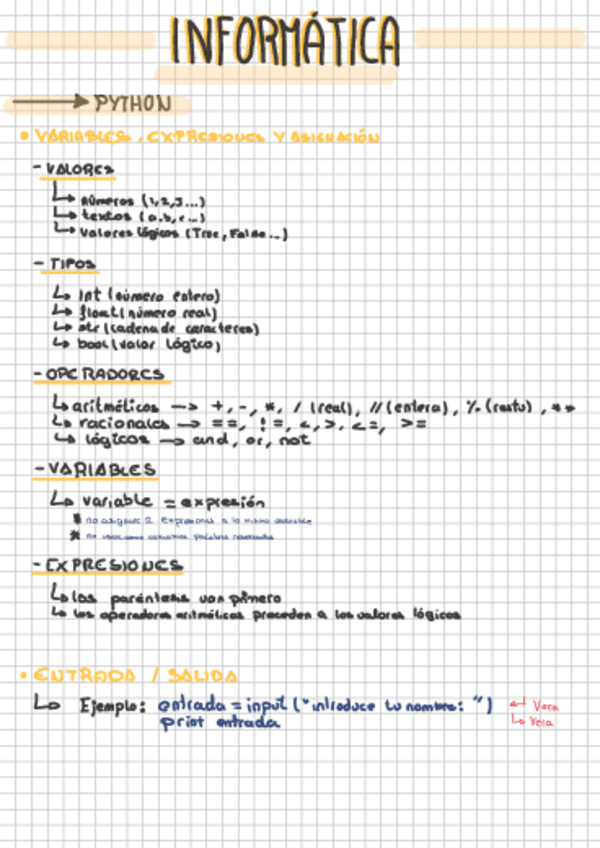 INFORMÁTICA
→ PYTHON
• VARIABLES, EXPRESIONES Y ASIGNACIÓN
- VALORES
↳ números (1,2,3...)
↳ textos (a,b,c...)
↳ valores lógicos (True, False...)
- TIPOS
↳ int (número entero)
↳ float (número real)
↳ str (cadena de caracteres)
↳ bool (valor lógico)
- OPERADORES
↳ aritméticos —> +, -, *, / (real), // (entera), % (resto), **
↳ racionales —> ==, !=, <, >, <=, >=
↳ lógicos —> and, or, not
- VARIABLES
↳ variable = expresión
* no asignar 2 expresiones a la misma variable
* no usar como variables palabras reservadas
- EXPRESIONES
↳ los paréntesis van primero
↳ los operadores aritméticos preceden a los valores lógicos
• ENTRADA / SALIDA
↳ Ejemplo: entrada = input ("introduce tu nombre: ") ↵ Vera
print entrada ↳ Vera